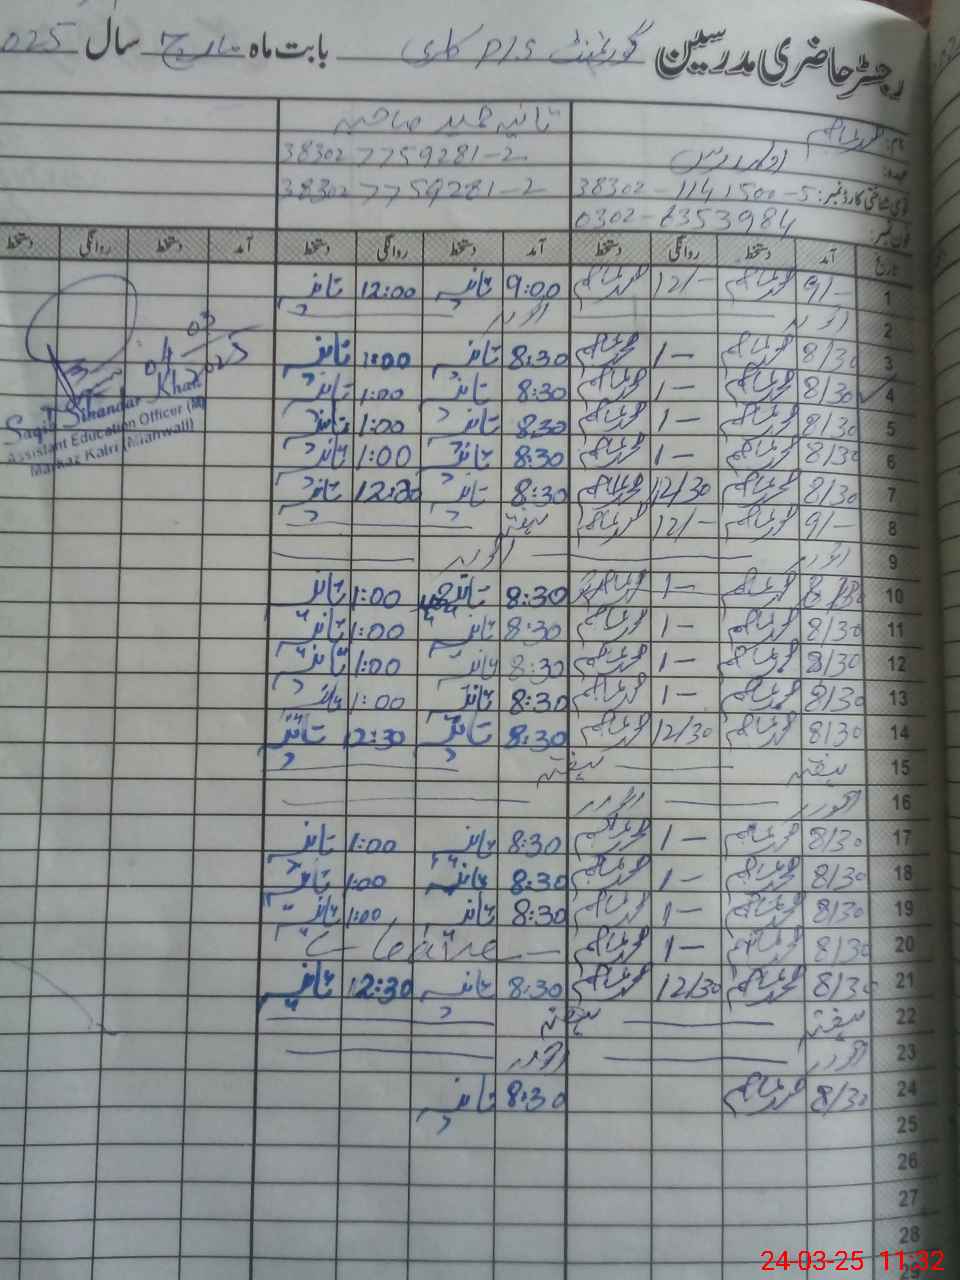 رجسٹر حاضری مدرسین گورنمنٹ P/S کلری بابت ماہ مارچ سال 025
نام:
ثانیہ حمید صاحبہ
عہدہ:
38302 7759281-2
قومی شناختی کارڈ نمبر: 38302-1141500-5
38302 7759281-2
فون نمبر: 0302-8353984
تاریخ آمد دستخط روانگی دستخط آمد دستخط روانگی دستخط آمد دستخط روانگی دستخط
1 9/- 12/- 9:00 ثانیہ 12:00 ثانیہ
2 اتوار اتوار
3 8/30 1- 8:30 ثانیہ 1:00 ثانیہ
4 8/30 1- 8:30 ثانیہ 1:00 ثانیہ
5 8/30 1- 8:30 ثانیہ 1:00 ثانیہ
6 8/30 1- 8:30 ثانیہ 1:00 ثانیہ
7 8/30 12/30 8:30 ثانیہ 12:30 ثانیہ
8 9/- 12/- ہفتہ
9 اتوار اتوار
10 8/30 1- 8:30 ثانیہ 1:00 ثانیہ
11 8/30 1- 8:30 ثانیہ 1:00 ثانیہ
12 8/30 1- 8:30 ثانیہ 1:00 ثانیہ
13 8/30 1- 8:30 ثانیہ 1:00 ثانیہ
14 8/30 12/30 8:30 ثانیہ 12:30 ثانیہ
15 ہفتہ ہفتہ
16 اتوار اتوار
17 8/30 1- 8:30 ثانیہ 1:00 ثانیہ
18 8/30 1- 8:30 ثانیہ 1:00 ثانیہ
19 8/30 1- 8:30 ثانیہ 1:00 ثانیہ
20 8/30 1- C-leave-
21 8/30 12/30 8:30 ثانیہ 12:30 ثانیہ
22 ہفتہ ہفتہ
23 اتوار اتوار
24 8/30 8:30 ثانیہ
25
26
27
28
29
04 03 025
Saqib Sikandar Khan
Assistant Education Officer (M)
Markaz Kalri (Mianwali)
24-03-25 11:32